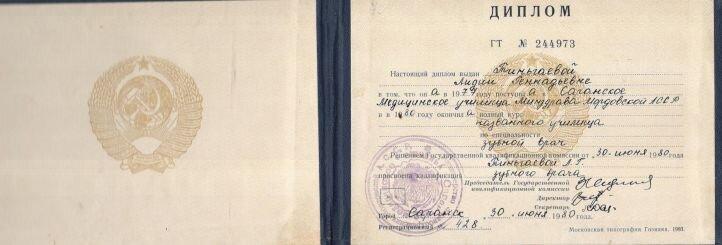 ДИПЛОМ
ГТ № 244973
Настоящий диплом выдан Тиньгаевой
Лидии Геннадьевне
в том, что он а в 19 году поступил а в Саранское
Медицинское училище Минздрава Мордовской АССР
и в 1980 году окончил а полный курс
названного училища
по специальности
зубной врач
Решением Государственной квалификационной комиссии от „30" июня 1980 года
Тиньгаевой Л.Г.
присвоена квалификация зубного врача
Председатель Государственной
квалификационной комиссии
Директор
Секретарь
Город Саранск „30" июня 1980 г.
Регистрационный № 428
Московская типография Гознака.